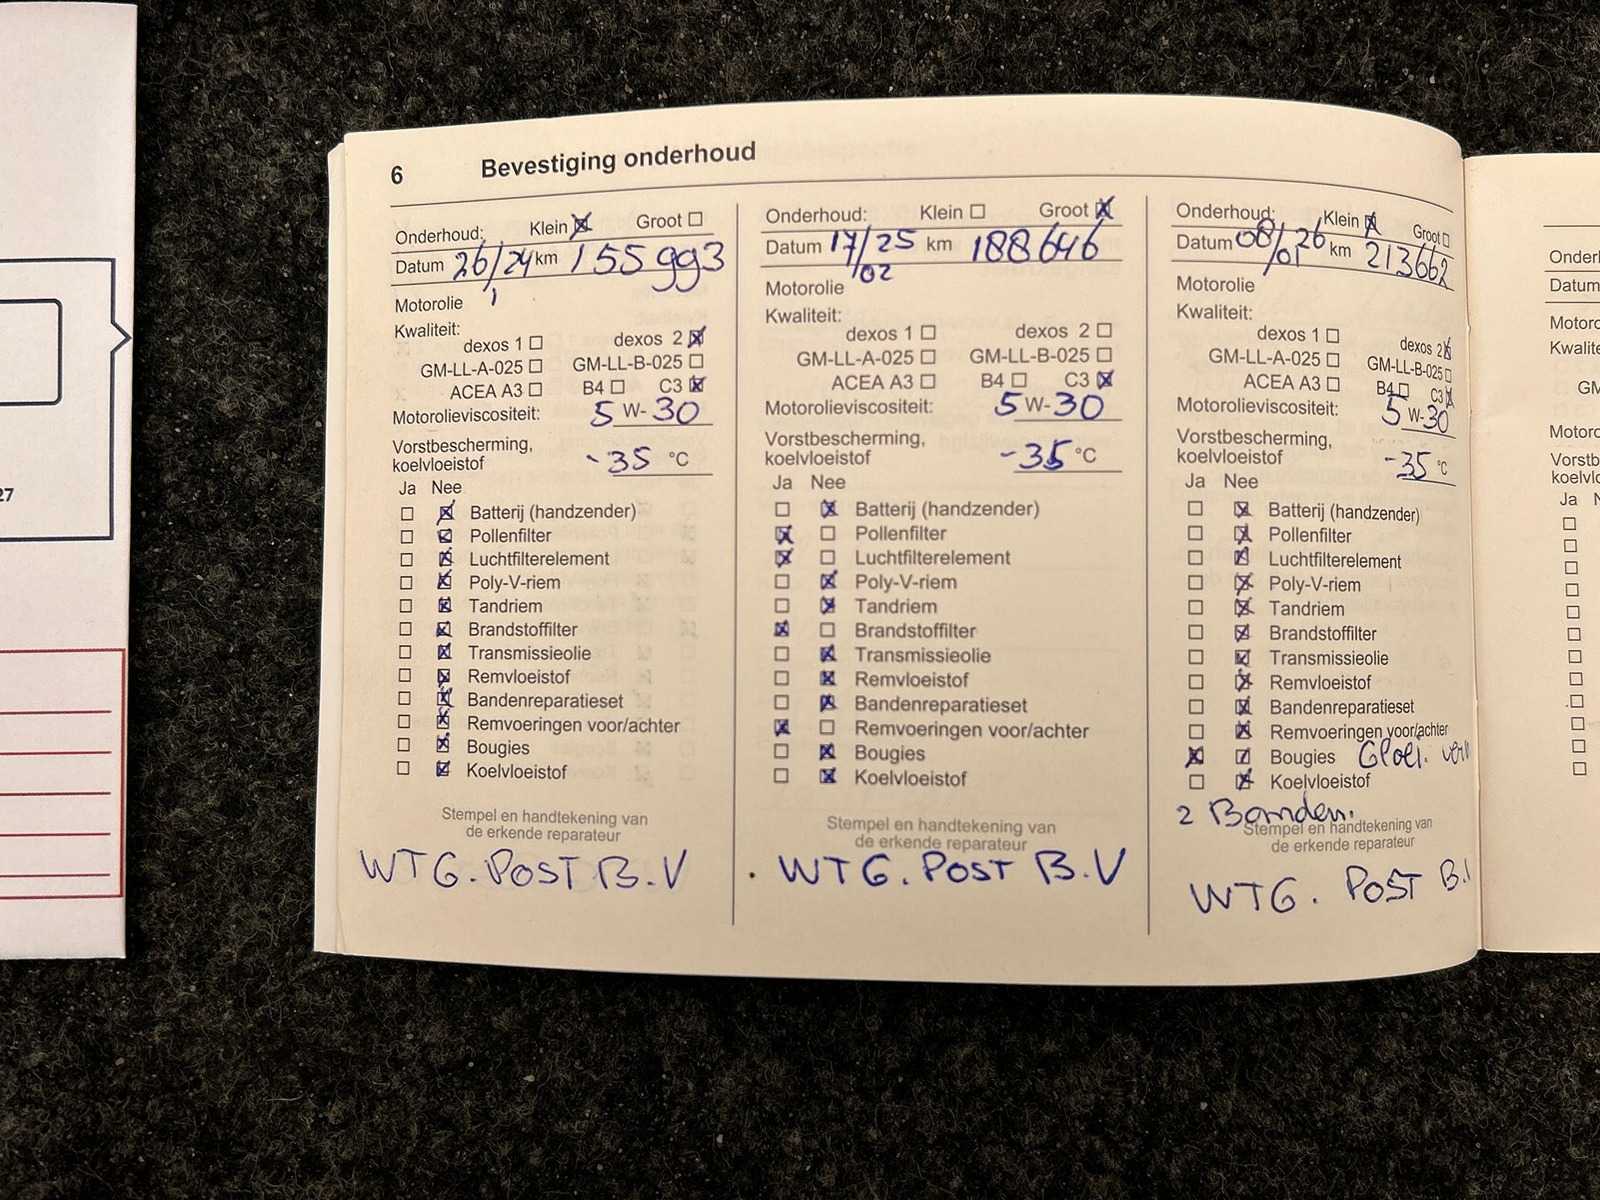 27
6 Bevestiging onderhoud
Onderhoud: Klein Groot
Datum 26/1/24 km 155993
Motorolie
Kwaliteit:
dexos 1 dexos 2
GM-LL-A-025 GM-LL-B-025
ACEA A3 B4 C3
Motorolieviscositeit: 5 W- 30
Vorstbescherming,
koelvloeistof -35 °C
Ja Nee
Batterij (handzender)
Pollenfilter
Luchtfilterelement
Poly-V-riem
Tandriem
Brandstoffilter
Transmissieolie
Remvloeistof
Bandenreparatieset
Remvoeringen voor/achter
Bougies
Koelvloeistof
Stempel en handtekening van
de erkende reparateur
WTG. POST B.V
Onderhoud: Klein Groot
Datum 17/02/25 km 188646
Motorolie
Kwaliteit:
dexos 1 dexos 2
GM-LL-A-025 GM-LL-B-025
ACEA A3 B4 C3
Motorolieviscositeit: 5 W- 30
Vorstbescherming,
koelvloeistof -35 °C
Ja Nee
Batterij (handzender)
Pollenfilter
Luchtfilterelement
Poly-V-riem
Tandriem
Brandstoffilter
Transmissieolie
Remvloeistof
Bandenreparatieset
Remvoeringen voor/achter
Bougies
Koelvloeistof
Stempel en handtekening van
de erkende reparateur
WTG. POST B.V
Onderhoud: Klein Groot
Datum 08/01/26 km 213662
Motorolie
Kwaliteit:
dexos 1 dexos 2
GM-LL-A-025 GM-LL-B-025
ACEA A3 B4 C3
Motorolieviscositeit: 5 W- 30
Vorstbescherming,
koelvloeistof -35 °C
Ja Nee
Batterij (handzender)
Pollenfilter
Luchtfilterelement
Poly-V-riem
Tandriem
Brandstoffilter
Transmissieolie
Remvloeistof
Bandenreparatieset
Remvoeringen voor/achter
Bougies Gloei.
Koelvloeistof
2 Banden.
Stempel en handtekening van
de erkende reparateur
WTG. POST B.
Datum
Ja